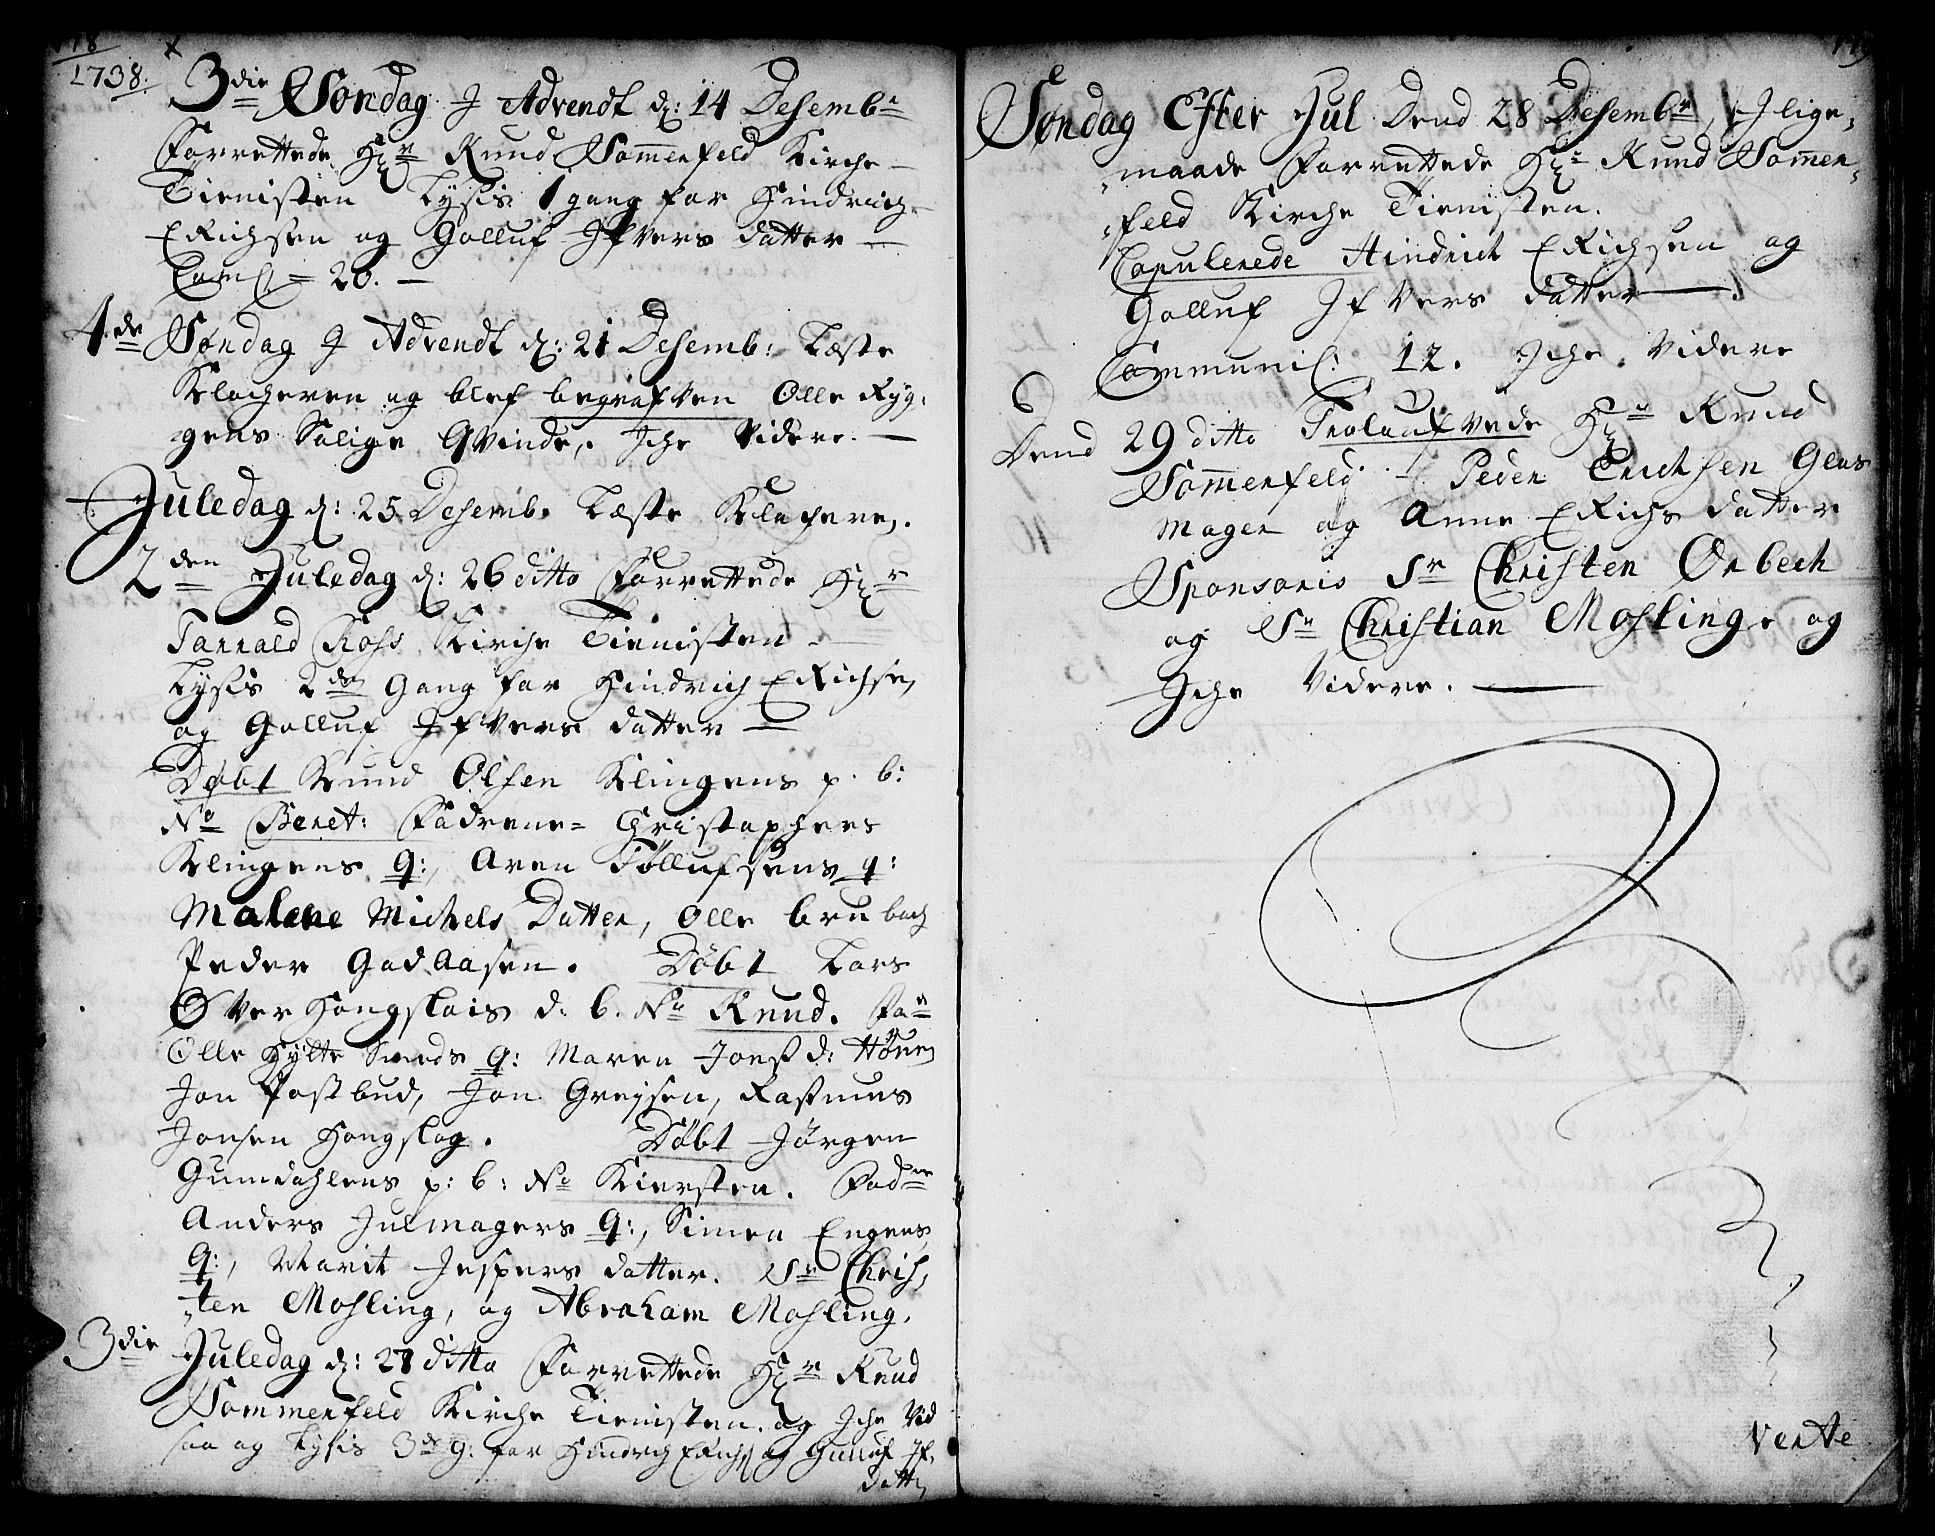 178
1738.
3die Søndag J Advendt d: 14 Desembr
Forrettede Hr Knud Sommerfeld Kirche
Tienisten Lysis 1 gang for Hindrich
ERichsen og Golluf Jfvers datter
Com: = 20.
4.de Søndag J Advendt d: 21 Desemb: Læste
Klocheren og blef begrafven Olle Ryg,
gens Salige Qvinde, Jche Videre.
Juledag d: 25 Desemb. Læste Klocheren.
2den Juledag d: 26 ditto Forrettede Hr
Tarrald Ross Kirche Tienisten
Lysis 2den Gang for Hindrich ERichsen
og Golluf Jfvers datter
Døbt Knud Olsen Klingens p. b:
No Beret: Fadrene = Christophers
Klingens q:, Aren Tøllufsens q:
Malene Michels Datter, Olle brubach
Peder Gadaasen. Døbt Lars
Over Hongslois d. b. No Knud. Far
Olle Hylte Smeds q: Maren Jonsd:
Jon Postbud, Jon Greisen, Rasmus
Jonsen Hongslog. Døbt Jørgen
Gumdahlens p: b: No Kiersten. Fadre
Anders Julmagers q:, Simen Engens
q:, Marit Jespers datter. Sr Chris,
ten Mosling, og Abraham Mosling.
3die Juledag d: 27 ditto Forrettede Hr Knud
Sommerfeld Kirche Tienisten. og Jche Vid
saa og Lysis 3de g: for Hindrich ERichs og Gulluf Jf.
datter
179
Søndag Efter Jul Dend 28 Desembr, Jlige,
maade Forrettede Hr Knud Sommer,
feld Kirche Tienisten.
Copulerede Hindrich ERichsen og
Golluf Jfvers datter.
Communi: 12. Jche Videre
Dend 29 ditto Trolaufvede Hr Knud
Sommerfeld Peder Erichsen Glas
mager og Anne ERichs datter
Sponsoris Sr Christen Orbech
og Sr Christian Mosling. og
Jche Videre.
Verte